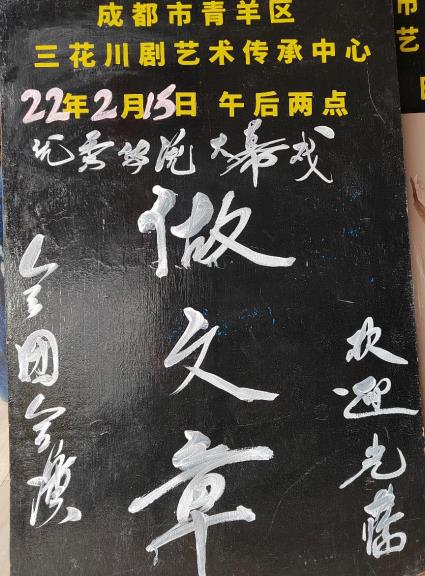 成都市青羊区
三花川剧艺术传承中心
22年2月15日 午后两点
优秀传统大幕戏
做文章
全团合演
欢迎光临
市
艺